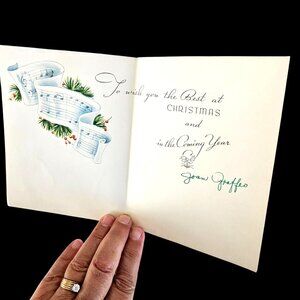 To wish you the Best at
CHRISTMAS
and
in the Coming Year
Joan Graffeo